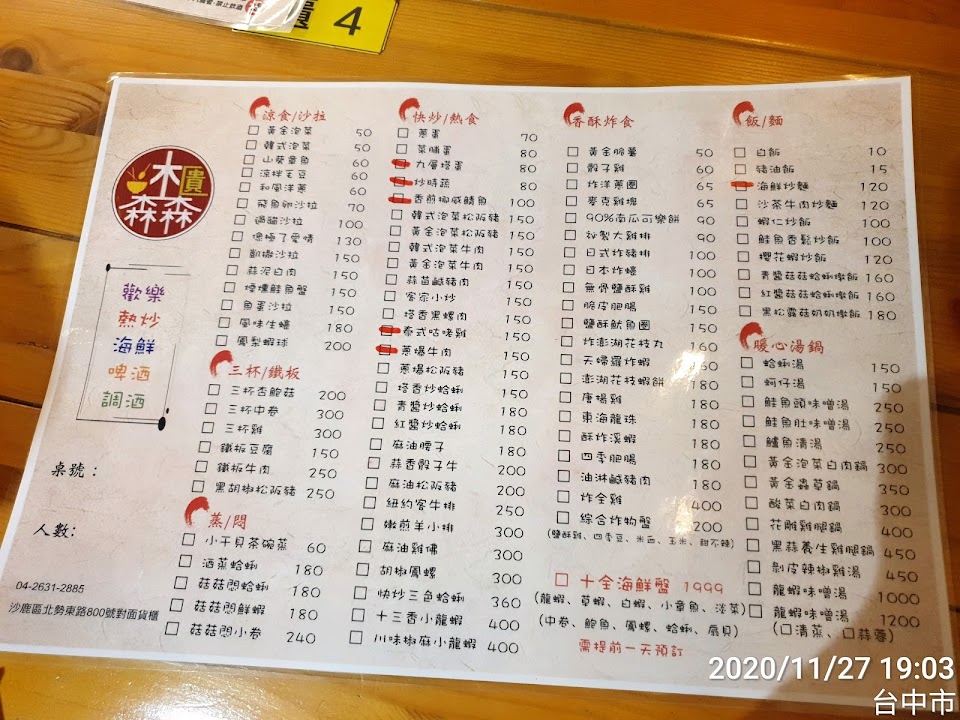 4
木
櫃
森森
歡樂
熱炒
海鮮
啤酒
調酒
桌號：
人數：
04-2631-2885
沙鹿區北勢東路800號對面貨櫃
涼食/沙拉
黃金泡菜 50
韓式泡菜 50
山葵章魚 60
涼拌毛豆 60
和風洋蔥 60
飛魚卵沙拉 70
鍋貓沙拉 100
像極了愛情 130
凱撒沙拉 150
蒜泥白肉 150
煙燻鮭魚盤 150
魚蛋沙拉 150
風味生蠔 180
鳳梨蝦球 200
三杯/鐵板
三杯杏鮑菇 200
三杯中卷 300
三杯雞 300
鐵板豆腐 150
鐵板牛肉 250
黑胡椒松阪豬 250
蒸/悶
小干貝茶碗蒸 60
酒蒸蛤蜊 180
菇菇悶蛤蜊 180
菇菇悶鮮蝦 180
菇菇悶小卷 240
快炒/熱食
蔥蛋 70
菜脯蛋 80
九層塔蛋 80
炒時蔬 80
香煎挪威鯖魚 100
韓式泡菜松阪豬 150
黃金泡菜松阪豬 150
韓式泡菜牛肉 150
黃金泡菜牛肉 150
蒜苗鹹豬肉 150
客家小炒 150
塔香黑螺肉 150
泰式咕咾雞 150
蔥爆牛肉 150
蔥爆松阪豬 150
塔香炒蛤蜊 150
青醬炒蛤蜊 180
紅醬炒蛤蜊 180
麻油腰子 180
蒜香骰子牛 180
麻油松阪豬 200
紐約客牛排 250
嫩煎羊小排 300
麻油雞佛 300
胡椒鳳螺 300
快炒三色蛤蜊 360
十三香小龍蝦 400
川味椒麻小龍蝦 400
香酥炸食
黃金脆薯 50
骰子雞 60
炸洋蔥圈 65
麥克雞塊 65
90%南瓜可樂餅 90
秘製大雞排 90
日式炸豬排 100
日本炸蠔 100
無骨鹽酥雞 100
脆皮肥腸 150
鹽酥魷魚圈 150
炸澎湖花枝丸 160
天婦羅炸蝦 160
澎湖花枝蝦餅 180
唐揚雞 180
東海龍珠 180
酥炸溪蝦 180
四季肥腸 180
油淋鹹豬肉 180
炸全雞 400
綜合炸物盤 200
(鹽酥雞、四季豆、米血、玉米、甜不辣)
十全海鮮盤 1999
(龍蝦、草蝦、白蝦、小章魚、淡菜)
(中卷、鮑魚、鳳螺、蛤蜊、扇貝)
需提前一天預訂
飯/麵
白飯 10
豬油飯 15
海鮮炒麵 120
沙茶牛肉炒麵 120
蝦仁炒飯 100
鮭魚香鬆炒飯 100
櫻花蝦炒飯 120
青醬菇菇蛤蜊燉飯 160
紅醬菇菇蛤蜊燉飯 160
黑松露菇奶奶燉飯 180
暖心湯鍋
蛤蜊湯 150
蚵仔湯 150
鮭魚頭味噌湯 250
鮭魚肚味噌湯 250
鱸魚清湯 250
黃金泡菜白肉鍋 300
黃金蟲草鍋 350
酸菜白肉鍋 300
花雕雞腿鍋 400
黑蒜養生雞腿鍋 450
剝皮辣椒雞湯 450
龍蝦味噌湯 1000
龍蝦味噌湯 1200
(口清蒸、口蒜蓉)
2020/11/27 19:03
台中市